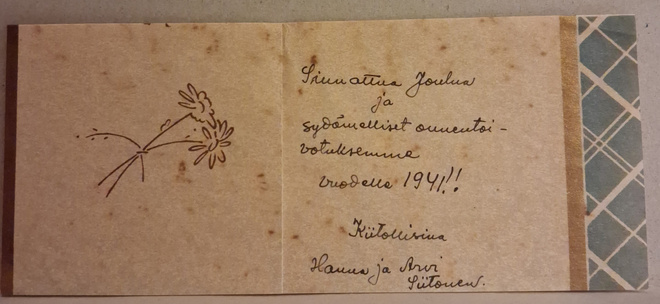 Siunattua Joulua
ja
sydämelliset onnentoi-
votuksemme
vuodelle 1941!!
Kiitollisina
Hanna ja Arvi
Siitonen.